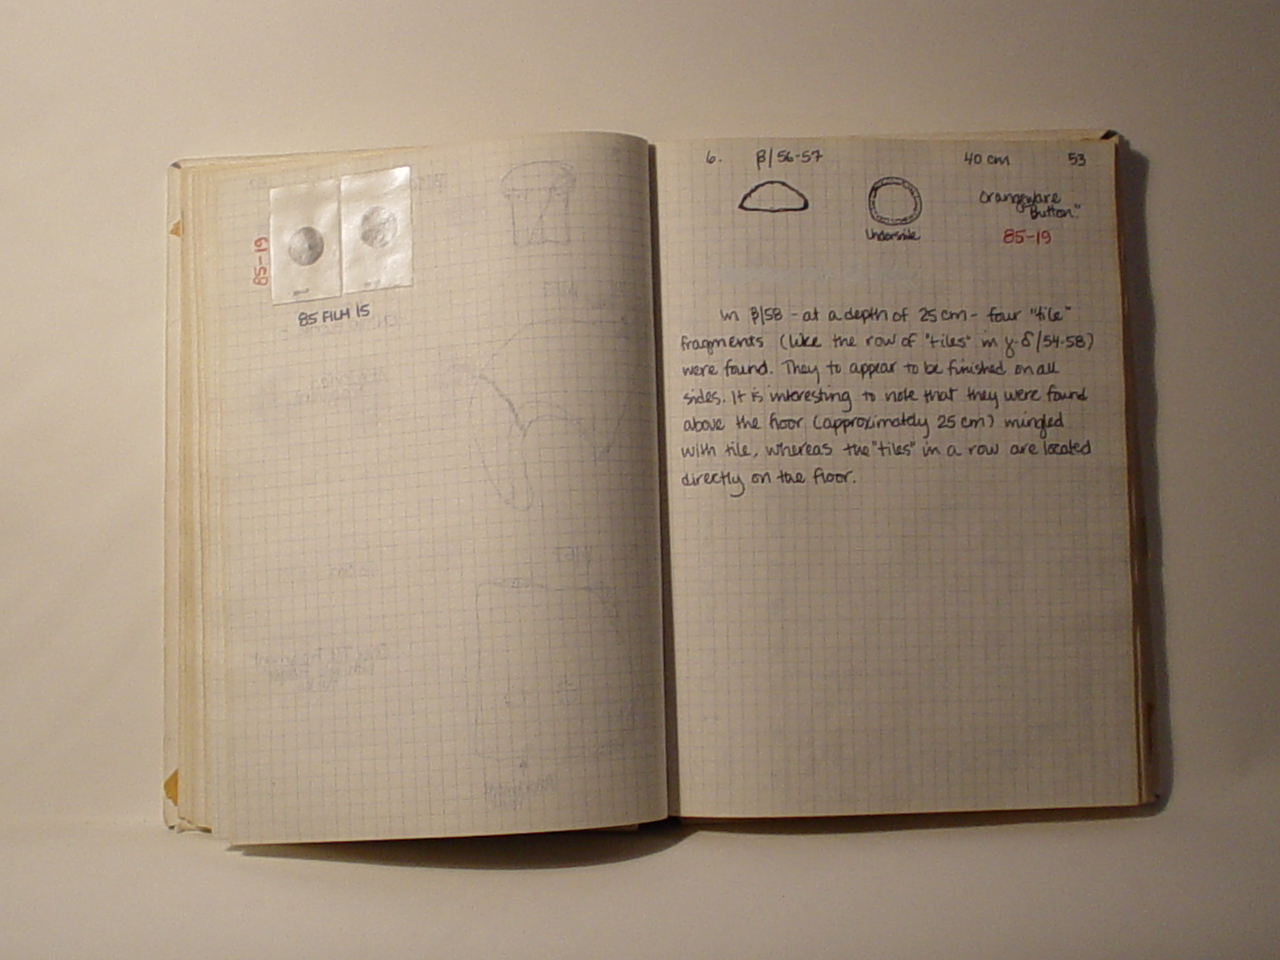 85-19
85 FILM 15
6. β/56-57 40 cm 53
Orangeware
Button."
Underside
85-19
In β/58 - at a depth of 25 cm - four "tile"
fragments (like the row of "tiles" in γ-δ/54-58)
were found. They to appear to be finished on all
sides. It is interesting to note that they were found
above the floor (approximately 25 cm) mingled
with tile, whereas the "tiles" in a row are located
directly on the floor.